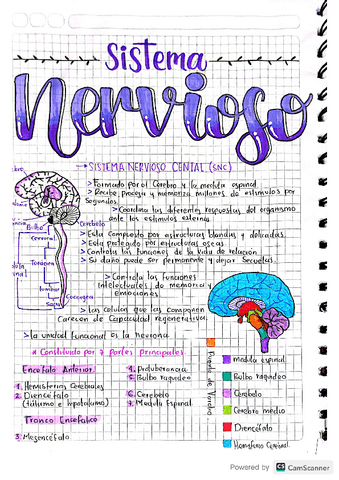 Sistema
nervioso
→SISTEMA NERVIOSO CENIAL (SNC)
>Formado por el Cerebro y la medula espinal.
>Recibe, procesa y memoriza millones de estimulos por
Segundos.
>Coordina las diferentes respuestas del organismo
ante los estimulos externos
>Esta compuesto por estructuras blandas y delicadas.
>Esta protegido por estructuras oseas
>Controla las funciones de la vida de relación
>Su daño puede ser permanente y dejar Secuelas.
>Controla las funciones
intelectuales de memoria y
emociones
>las celulas que las componen
Carecen de Capacidad regenerativa.
>la unidad funcional es la neurona
Constituido por 7 partes Principales
Bulbo
Cerebelo
Cervical
Toracica
lumbar
Sacra
Coccigea
Encefalo Anterior.
1. Hemisferios Cerebrales
2. Diencéfalo
(tálamo e hipotalamo)
Tronco Encefalico
3. Mezencéfalo
4. Protuberancia
5. Bulbo raquideo
6. Cerebelo
7. Medula Espinal
Puente de Varolio.
medula espinal
Bulbo raquideo
Cerebelo
Cerebro medio
Diencéfalo
Hemisferio Cerebral
Powered by CS CamScanner